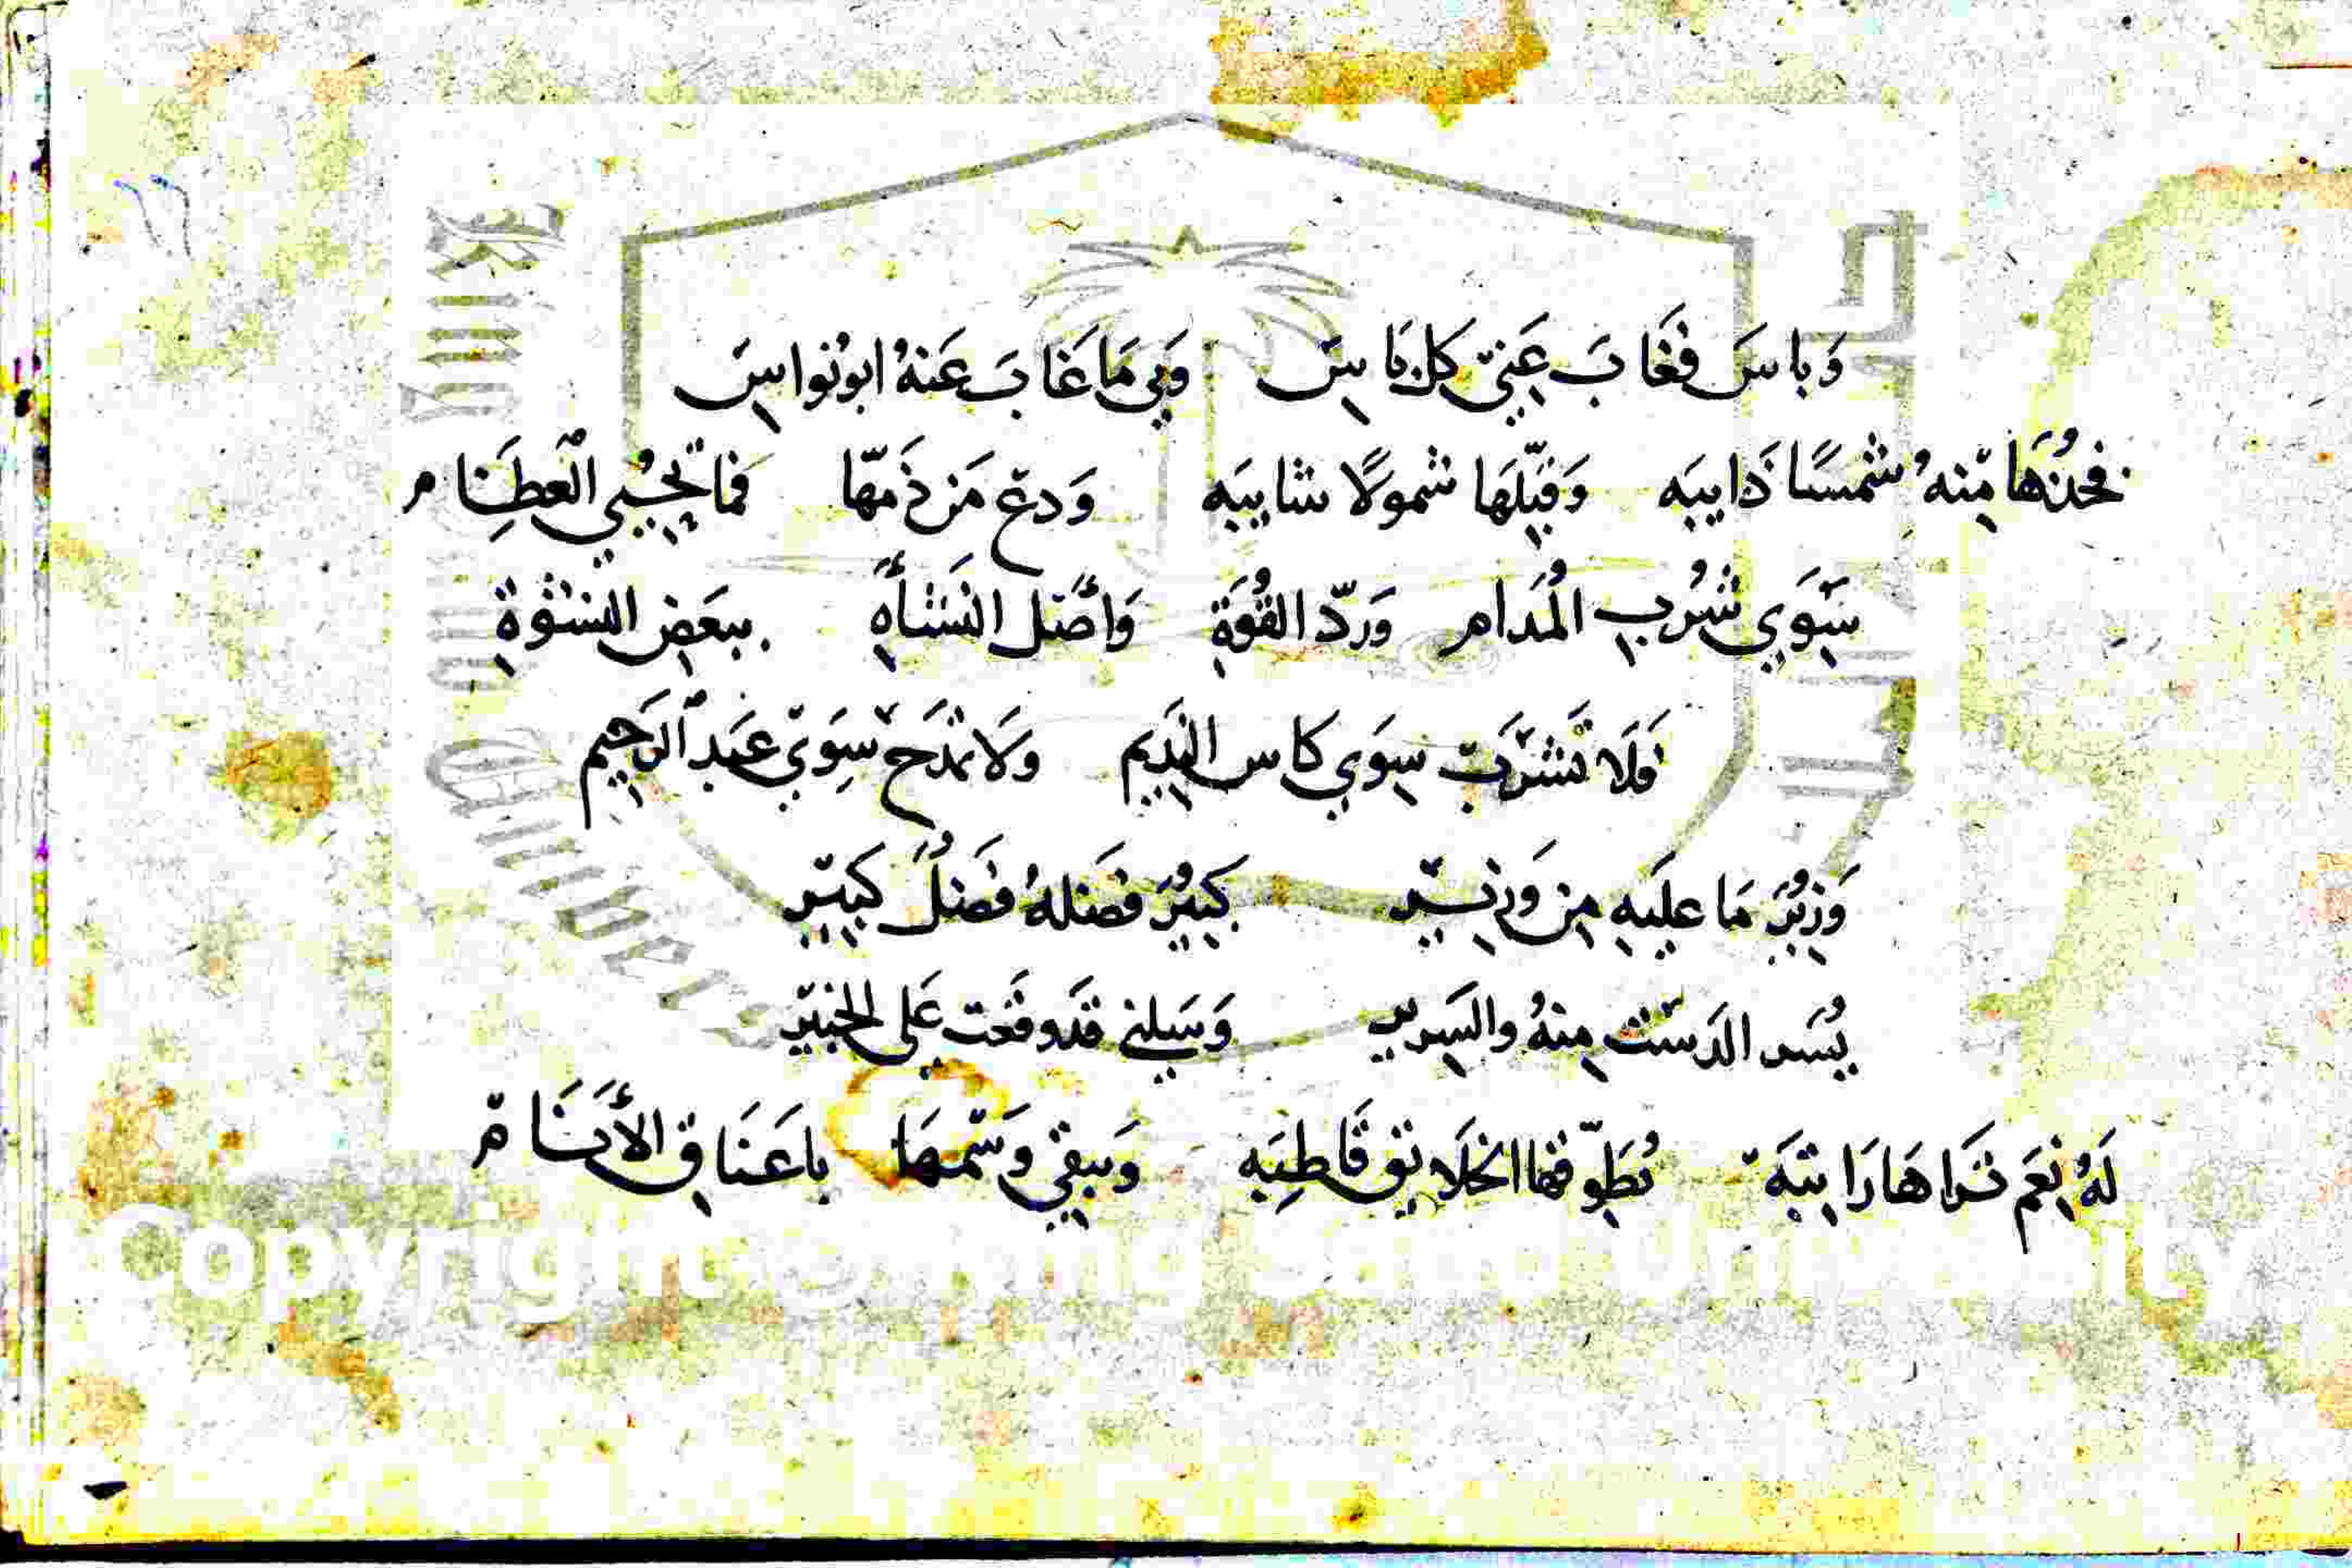 وَبَاسَ فَغَابَ عَنِّي كل بَاسِ وَبِي مَا غَابَ عَنهُ ابو نُواسِ
فخُذهَا مِنهُ شمسًا ذَايبَه وَقبّلهَا شمولًا شايبَه وَدع مَن ذَمّهَا فما تُحيي العِظَام
سِوَي شُربِ المُدَام وَردّ القُوَةِ وَاصل النَشأةِ ببعَضِ النشوةِ
فَلَا تَشرَب سِوَي كاس النَدِيم وَلَا تمدَح سِوَي عَبد الرَحِيم
وَزيُرَ مَا علَيهِ مِن وَزِير كبيُرَ فضَلهُ فَضلُ كَبير
يُسَر الدَست مِنهُ والسَرير وَسَلني قَد وقَعت عَلى الخبَير
لَهُ نِعَم تَراهَا رَاتبَة تُطَوّقها الخلَايق قَاطِبَه وَيبقي وَسمهَا باعَنَاقِ الأنَام
Copyright © King Saud University